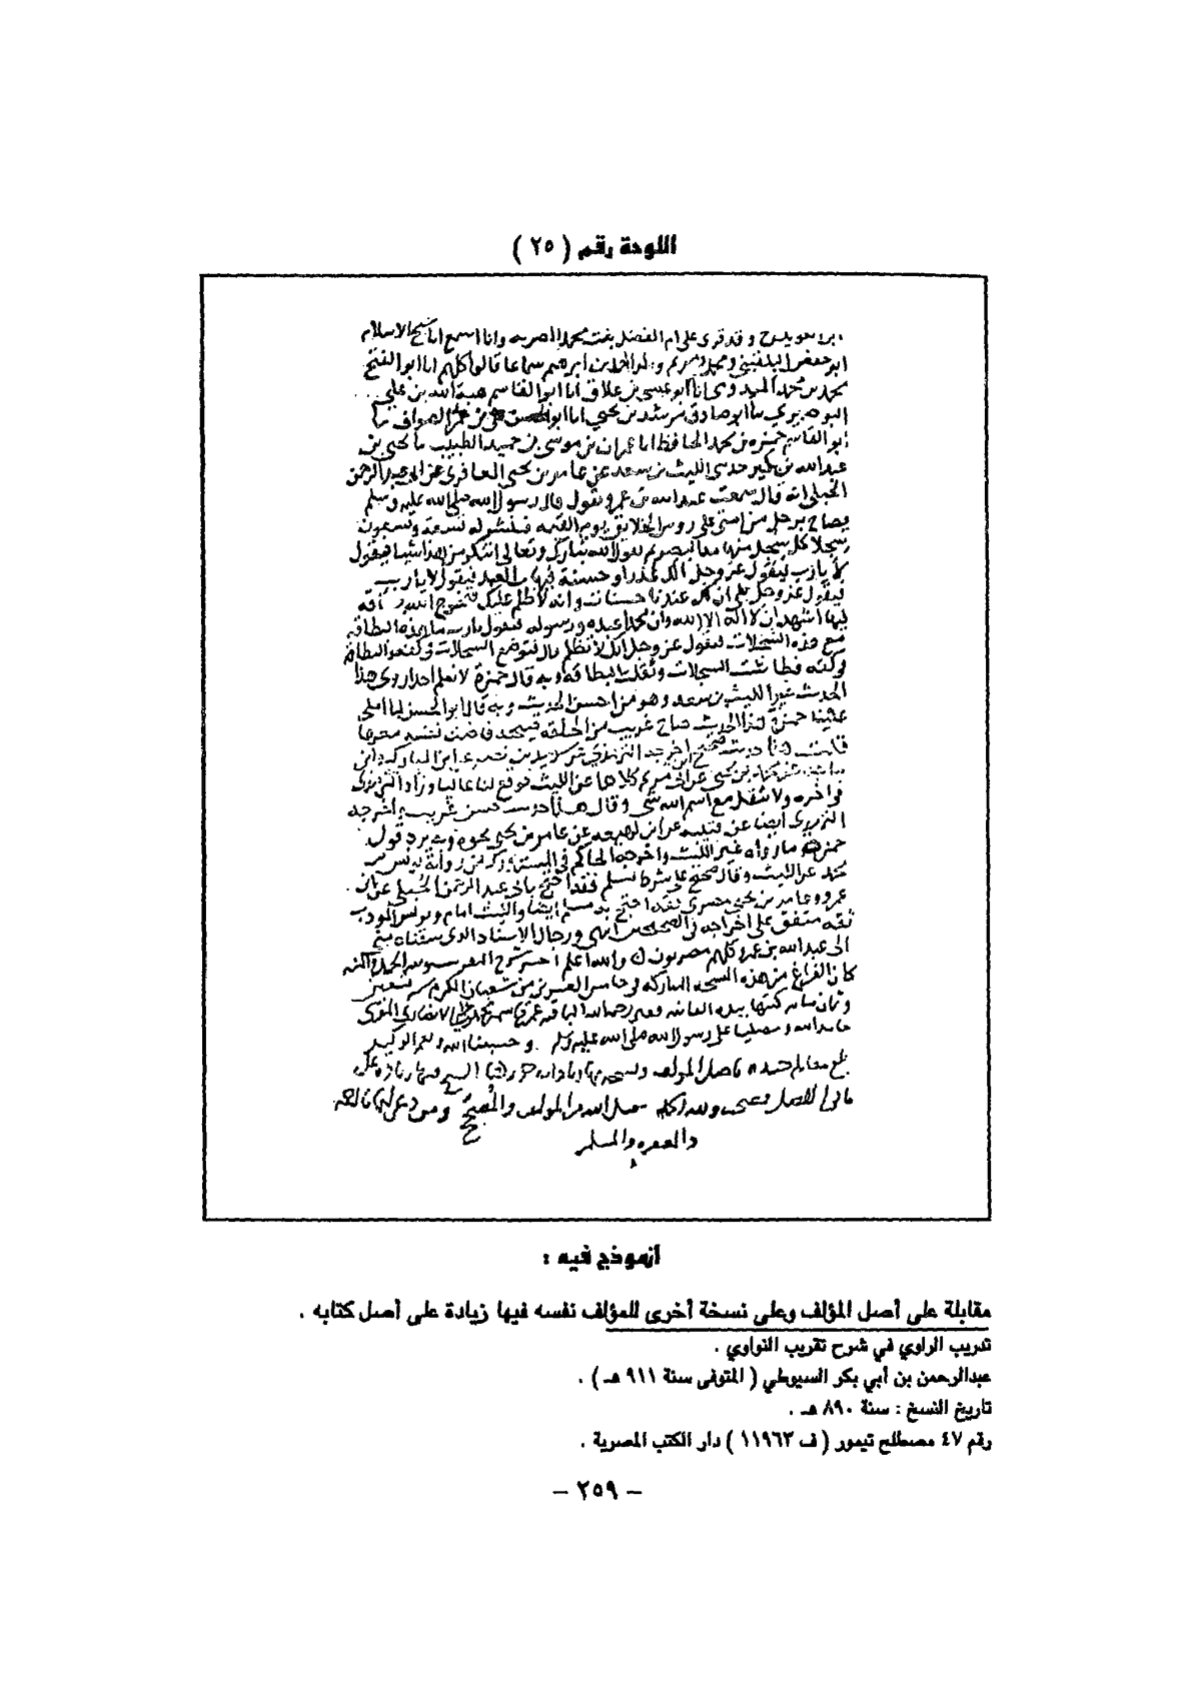 اللوحة رقم ( ٢٥ )
وقد قرئ على أم الفضل بنت محمد المصرية وأنا أسمع أنا شيخ الإسلام
أبو حفص البلقيني
محمد بن محمد الميدومي أنا أبو عيسى بن علاق أنا أبو القاسم هبة الله بن علي
البوصيري أنا أبو صادق مرشد بن يحيى أنا أبو الحسن علي بن عمر الصواف نا
أبو القاسم حمزة بن محمد الحافظ أنا عمران بن موسى بن حميد الطبيب نا يحيى بن
عبد الله بن بكير حدثني الليث بن سعد عن عامر بن يحيى المعافري عن أبي عبد الرحمن
الحبلي أنه قال سمعت عبد الله بن عمرو يقول قال رسول الله صلى الله عليه وسلم
يصاح برجل من أمتي على روس الخلائق يوم القيمة فينشر له تسعة وتسعون
سجلا كل سجل منها مد البصر ثم يقول الله تبارك وتعالى أتنكر من هذا شيا فيقول
لا يا رب فيقول عز وجل ألك عذر أو حسنة فيهاب العبد فيقول لا يا رب
فيقول عز وجل بلى إن لك عندنا حسنات وإنه لا ظلم عليك فتخرج له بطاقة
فيها أشهد أن لا اله الا الله وأن محمدا عبده ورسوله فيقول يا رب ما هذه البطاقة
مع هذه السجلات فيقول عز وجل إنك لا تظلم قال فتوضع السجلات في كفة والبطاقة
في كفة فطاشت السجلات وثقلت البطاقة وبه قال حمزة لا نعلم أحدا روى هذا
الحديث غير الليث بن سعد وهو من أحسن الحديث وبه قال أبو الحسن لما أملى
علينا حمزة هذا الحديث صاح غريب من الحلقة صيحة فاضت نفسه معها
قلت هذا حديث صحيح أخرجه الترمذي عن سويد بن نصر عن ابن المبارك وابن
ماجه عن محمد بن يحيى عن ابن أبي مريم كلاهما عن الليث فوقع لنا عاليا وزاد الترمذي
في آخره ولا يثقل مع اسم الله شي وقال هذا حديث حسن غريب وأخرجه
الترمذي أيضا عن قتيبة عن ابن لهيعة عن عامر بن يحيى نحوه وبه يرد قول
حمزة ما رواه غير الليث وأخرجه الحاكم في المستدرك من رواية يونس بن
محمد عن الليث وقال صحيح على شرط مسلم فقد احتج بأبي عبد الرحمن الحبلي عن ابن
عمرو وعامر بن يحيى مصري ثقة احتج به مسلم أيضا والليث إمام ويونس المودب
ثقة متفق على إخراجه في الصحيحين انتهى ورجال الإسناد الذي سقناه
إلى عبد الله بن عمرو كلهم مصريون والله أعلم آخر شرح التقريب ولله الحمد والمنة
كان الفراغ من هذه النسخة المباركة في خامس العشرين من شعبان المكرم سنة تسعين
وثمان مائة كتبها بيده الفانية فقير رحمة الله الباقية عمر بن قاسم بن محمد بن علي الأنصاري المقري
حامدا لله ومصليا على رسول الله صلى الله عليه وسلم وحسبنا الله ونعم الوكيل
بلغ مقابلة بأصل المولف
بالمغفرة والمسلمين
أنموذج فيه :
مقابلة على أصل المؤلف وعلى نسخة أخرى للمؤلف نفسه فيها زيادة على أصل كتابه .
تدريب الراوي في شرح تقريب النواوي .
عبدالرحمن بن أبي بكر السيوطي ( المتوفى سنة ٩١١ هـ ) .
تاريخ النسخ : سنة ٨٩٠ هـ .
رقم ٤٧ مصطلح تيمور ( ف ١١٩٦٣ ) دار الكتب المصرية .
– ٢٥٩ –